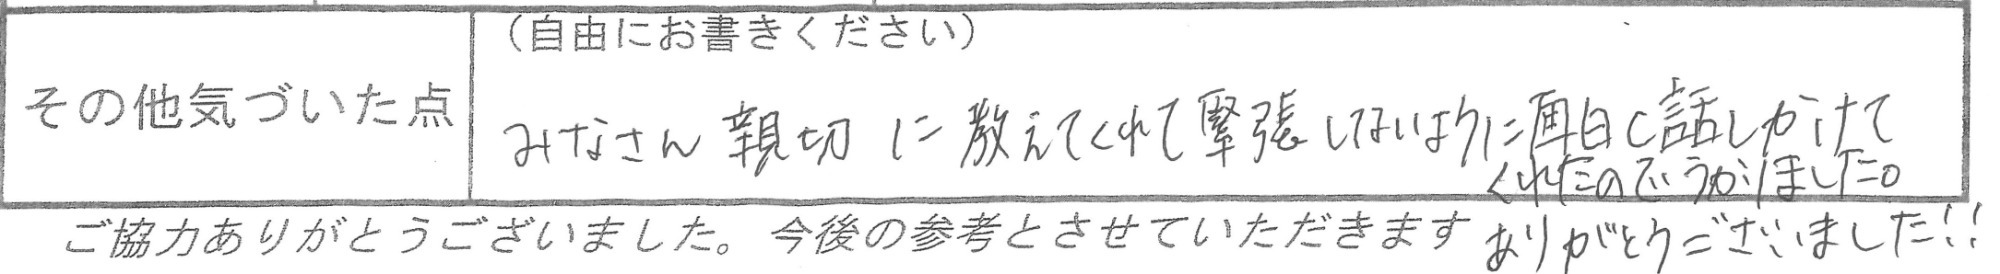 （自由にお書きください）
その他気づいた点
みなさん親切に教えてくれて緊張しないように面白く話しかけて
くれたので
ご協力ありがとうございました。今後の参考とさせていただきます
ありがとうございました!!